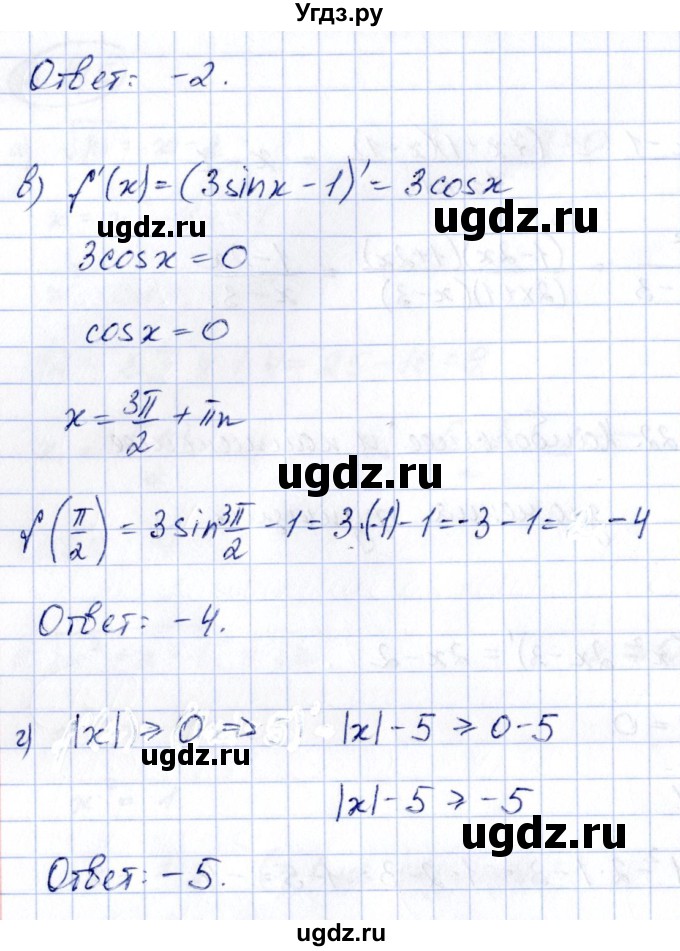 Угдз.ру
Ответ: -2.
в) f'(x) = (3sinx - 1)' = 3cosx
ugdz.ru
ugdz.ru
3cosx = 0
cosx = 0
x = 3π/2 + πn
ugdz.ru
f(π/2) = 3sin 3π/2 - 1 = 3·(-1) - 1 = -3 - 1 = -4
Ответ: -4.
г) |x| ≥ 0 => |x| - 5 ≥ 0 - 5
ugdz.ru
|x| - 5 ≥ -5
ugdz.ru
Ответ: -5.
ugdz.ru